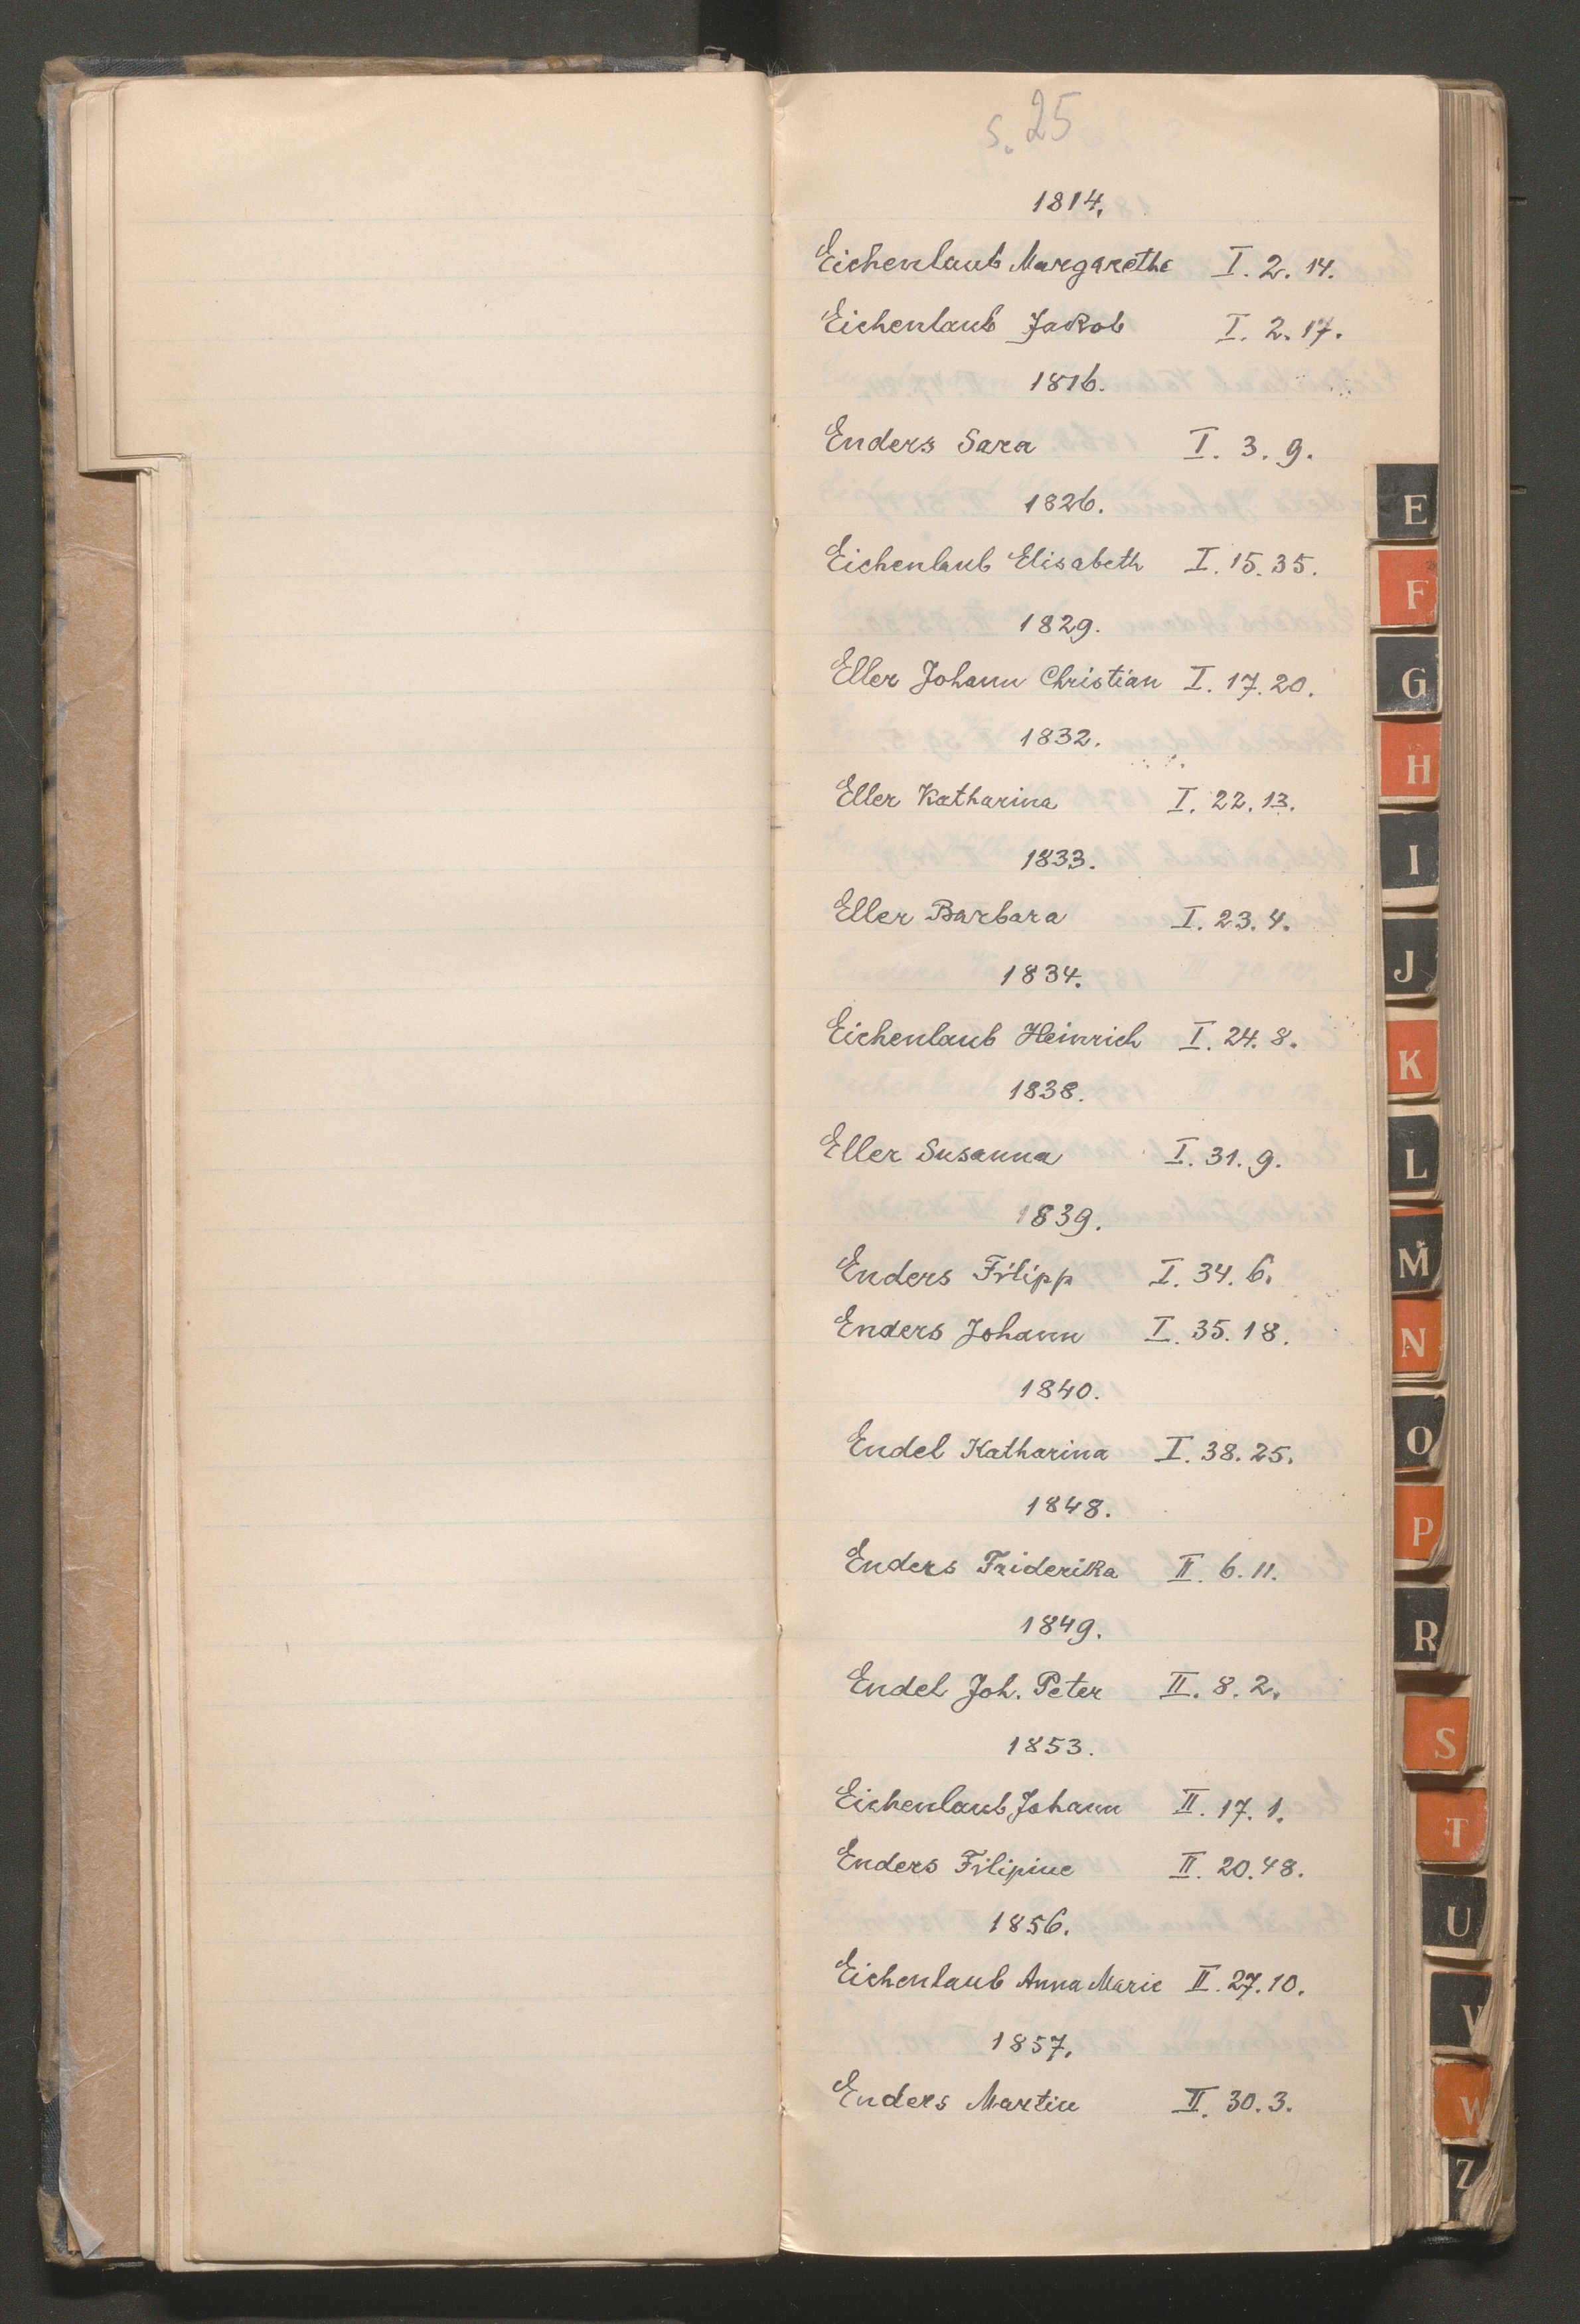 s. 25
1814.
Eichenlaub Margarethe I. 2. 14.
Eichenlaub Jakob I. 2. 17.
1816.
Enders Sara I. 3. 9.
1826.
Eichenlaub Elisabeth I. 15. 35.
1829.
Eller Johann Christian I. 17. 20.
1832.
Eller Katharina I. 22. 13.
1833.
Eller Barbara I. 23. 4.
1834.
Eichenlaub Heinrich I. 24. 8.
1838.
Eller Susanna I. 31. 9.
1839.
Enders Filipp I. 34. 6.
Enders Johann I. 35. 18.
1840.
Endel Katharina I. 38. 25.
1848.
Enders Friderika II. 6. 11.
1849.
Endel Joh. Peter II. 8. 2.
1853.
Eichenlaub Johann II. 17. 1.
Enders Filipine II. 20. 48.
1856.
Eichenlaub Anna Marie II. 27. 10.
1857.
Enders Martin II. 30. 3.
E
F
G
H
I
J
K
L
M
N
O
P
R
S
T
U
V
W
Z